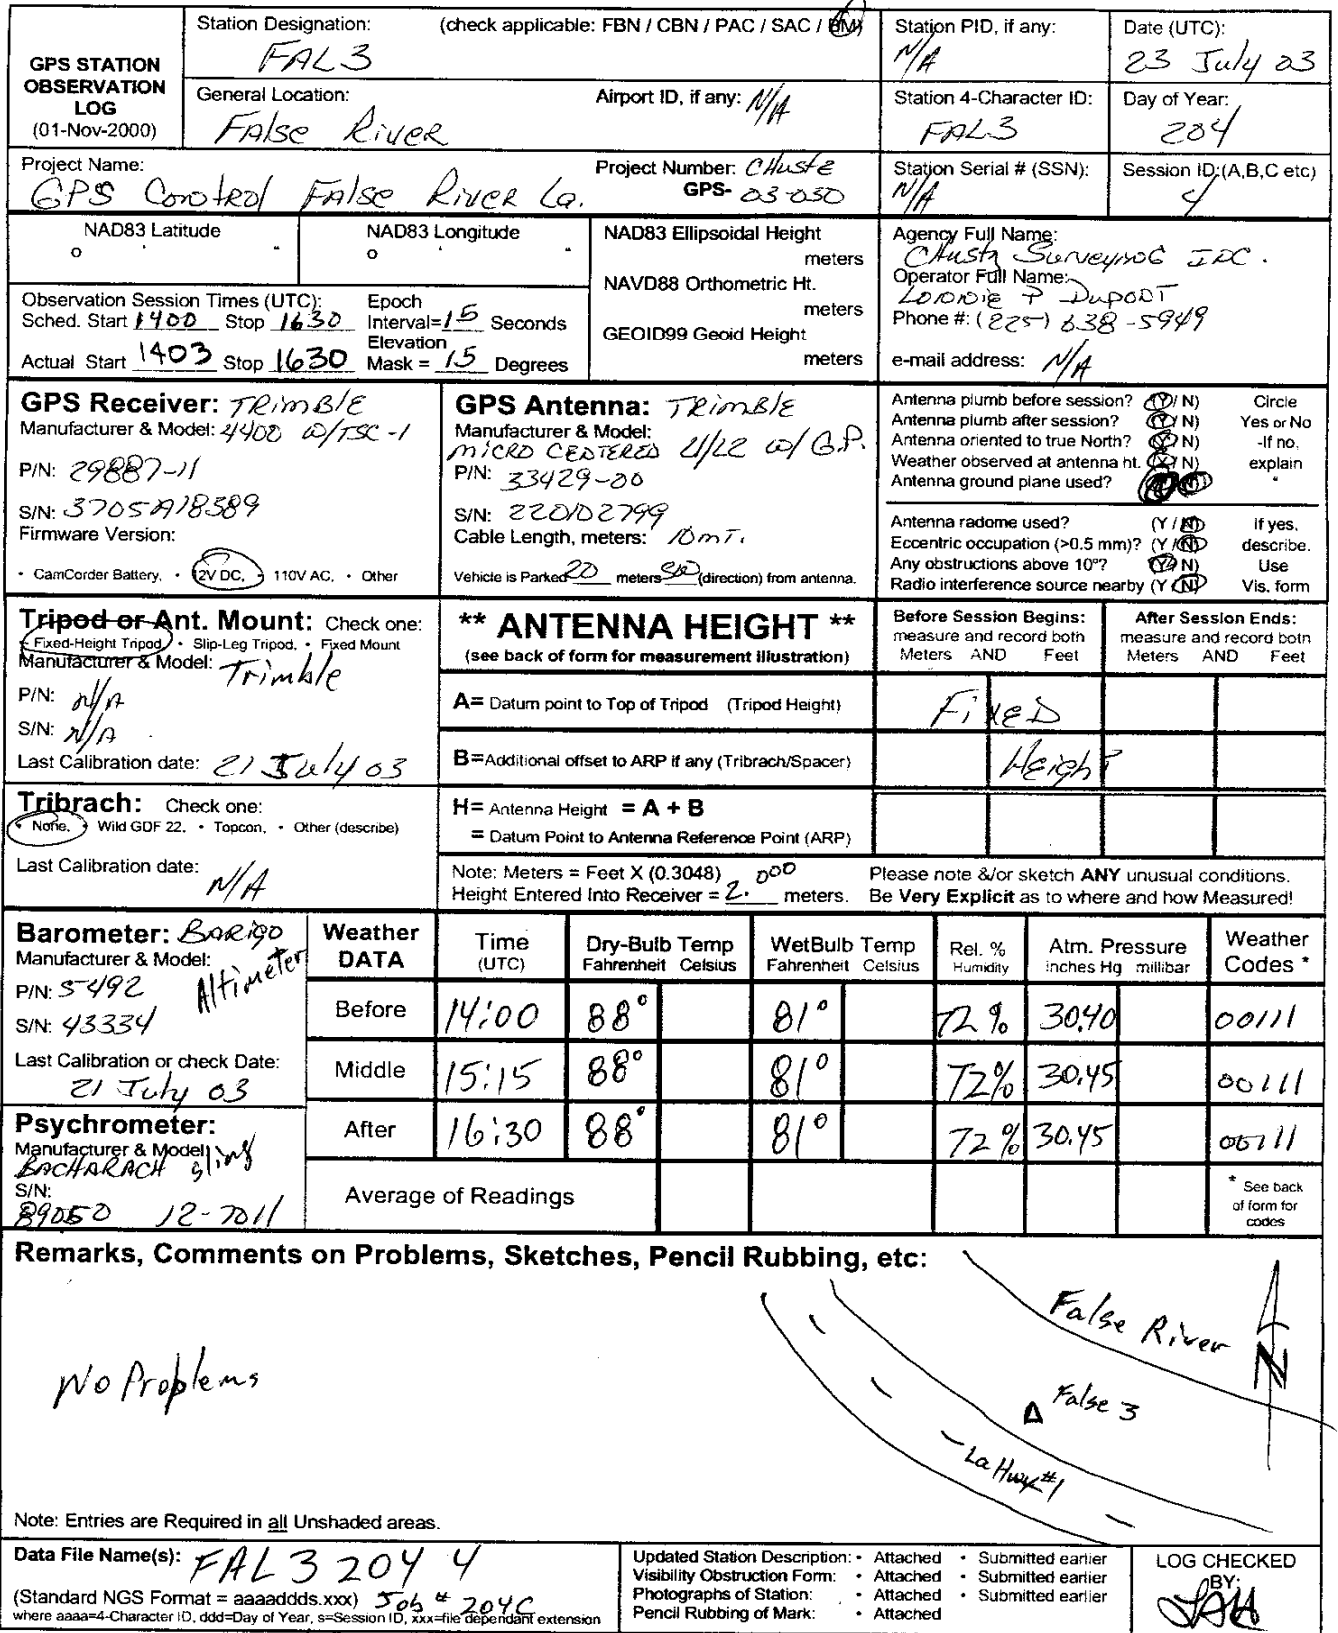 GPS STATION OBSERVATION LOG (01-Nov-2000)
Station Designation: (check applicable: FBN / CBN / PAC / SAC / BM)
FAL3
Station PID, if any: N/A
Date (UTC): 23 July 03
General Location: False River
Airport ID, if any: N/A
Station 4-Character ID: FAL3
Day of Year: 204
Project Name: GPS Control False River La.
Project Number: CHustz
GPS- 03-030
Station Serial # (SSN): N/A
Session ID:(A,B,C etc) 4
NAD83 Latitude
° ' "
NAD83 Longitude
° ' "
NAD83 Ellipsoidal Height
meters
NAVD88 Orthometric Ht.
meters
GEOID99 Geoid Height
meters
Agency Full Name: CHustz Surveying INC.
Operator Full Name: Lonnie P Dupont
Phone #: (225) 638-5949
e-mail address: N/A
Observation Session Times (UTC):
Sched. Start 1400 Stop 1630
Actual Start 1403 Stop 1630
Epoch
Interval= 15 Seconds
Elevation
Mask = 15 Degrees
GPS Receiver: TRimBlE
Manufacturer & Model: 4400 W/TSC-1
P/N: 29887-11
S/N: 3705A18389
Firmware Version:
• CamCorder Battery, • 12V DC, • 110V AC, • Other
GPS Antenna: TRimBlE
Manufacturer & Model:
MICRO CENTERED L1/L2 W/ G.P.
P/N: 33429-00
S/N: 220102799
Cable Length, meters: 10mT.
Vehicle is Parked 20 meters SW (direction) from antenna.
Antenna plumb before session? (Y / N) Circle
Antenna plumb after session? (Y / N) Yes or No
Antenna oriented to true North? (Y / N) -If no,
Weather observed at antenna ht. (Y / N) explain
Antenna ground plane used? "
Antenna radome used? (Y / N) If yes,
Eccentric occupation (>0.5 mm)? (Y / N) describe.
Any obstructions above 10°? (Y / N) Use
Radio interference source nearby (Y / N) Vis. form
Tripod or Ant. Mount: Check one:
• Fixed-Height Tripod, • Slip-Leg Tripod, • Fixed Mount
Manufacturer & Model: Trimble
P/N: N/A
S/N: N/A
Last Calibration date: 21 July 03
** ANTENNA HEIGHT **
(see back of form for measurement illustration)
Before Session Begins:
measure and record both
Meters AND Feet
After Session Ends:
measure and record both
Meters AND Feet
A= Datum point to Top of Tripod (Tripod Height)
Fixed
B=Additional offset to ARP if any (Tribrach/Spacer)
Height
Tribrach: Check one:
• None, • Wild GDF 22, • Topcon, • Other (describe)
Last Calibration date: N/A
H= Antenna Height = A + B
= Datum Point to Antenna Reference Point (ARP)
Note: Meters = Feet X (0.3048)
Height Entered Into Receiver = 2.000 meters.
Please note &/or sketch ANY unusual conditions.
Be Very Explicit as to where and how Measured!
Barometer: BARIGO
Manufacturer & Model: Altimeter
P/N: 5492
S/N: 43334
Last Calibration or check Date:
21 July 03
Psychrometer:
Manufacturer & Model
BACHARACH sling
S/N:
89050 12-7011
Weather DATA Time (UTC) Dry-Bulb Temp Fahrenheit Celsius WetBulb Temp Fahrenheit Celsius Rel. % Humidity Atm. Pressure inches Hg millibar Weather Codes *
Before 14:00 88° 81° 72% 30.40 00111
Middle 15:15 88° 81° 72% 30.45 00111
After 16:30 88° 81° 72% 30.45 00111
Average of Readings
* See back of form for codes
Remarks, Comments on Problems, Sketches, Pencil Rubbing, etc:
No Problems
False River
N
False 3
La Hwy #1
Note: Entries are Required in all Unshaded areas.
Data File Name(s): FAL3 204 4
(Standard NGS Format = aaaaddds.xxx) Job # 204C
where aaaa=4-Character ID, ddd=Day of Year, s=Session ID, xxx=file dependant extension
Updated Station Description: • Attached • Submitted earlier
Visibility Obstruction Form: • Attached • Submitted earlier
Photographs of Station: • Attached • Submitted earlier
Pencil Rubbing of Mark: • Attached
LOG CHECKED
BY: